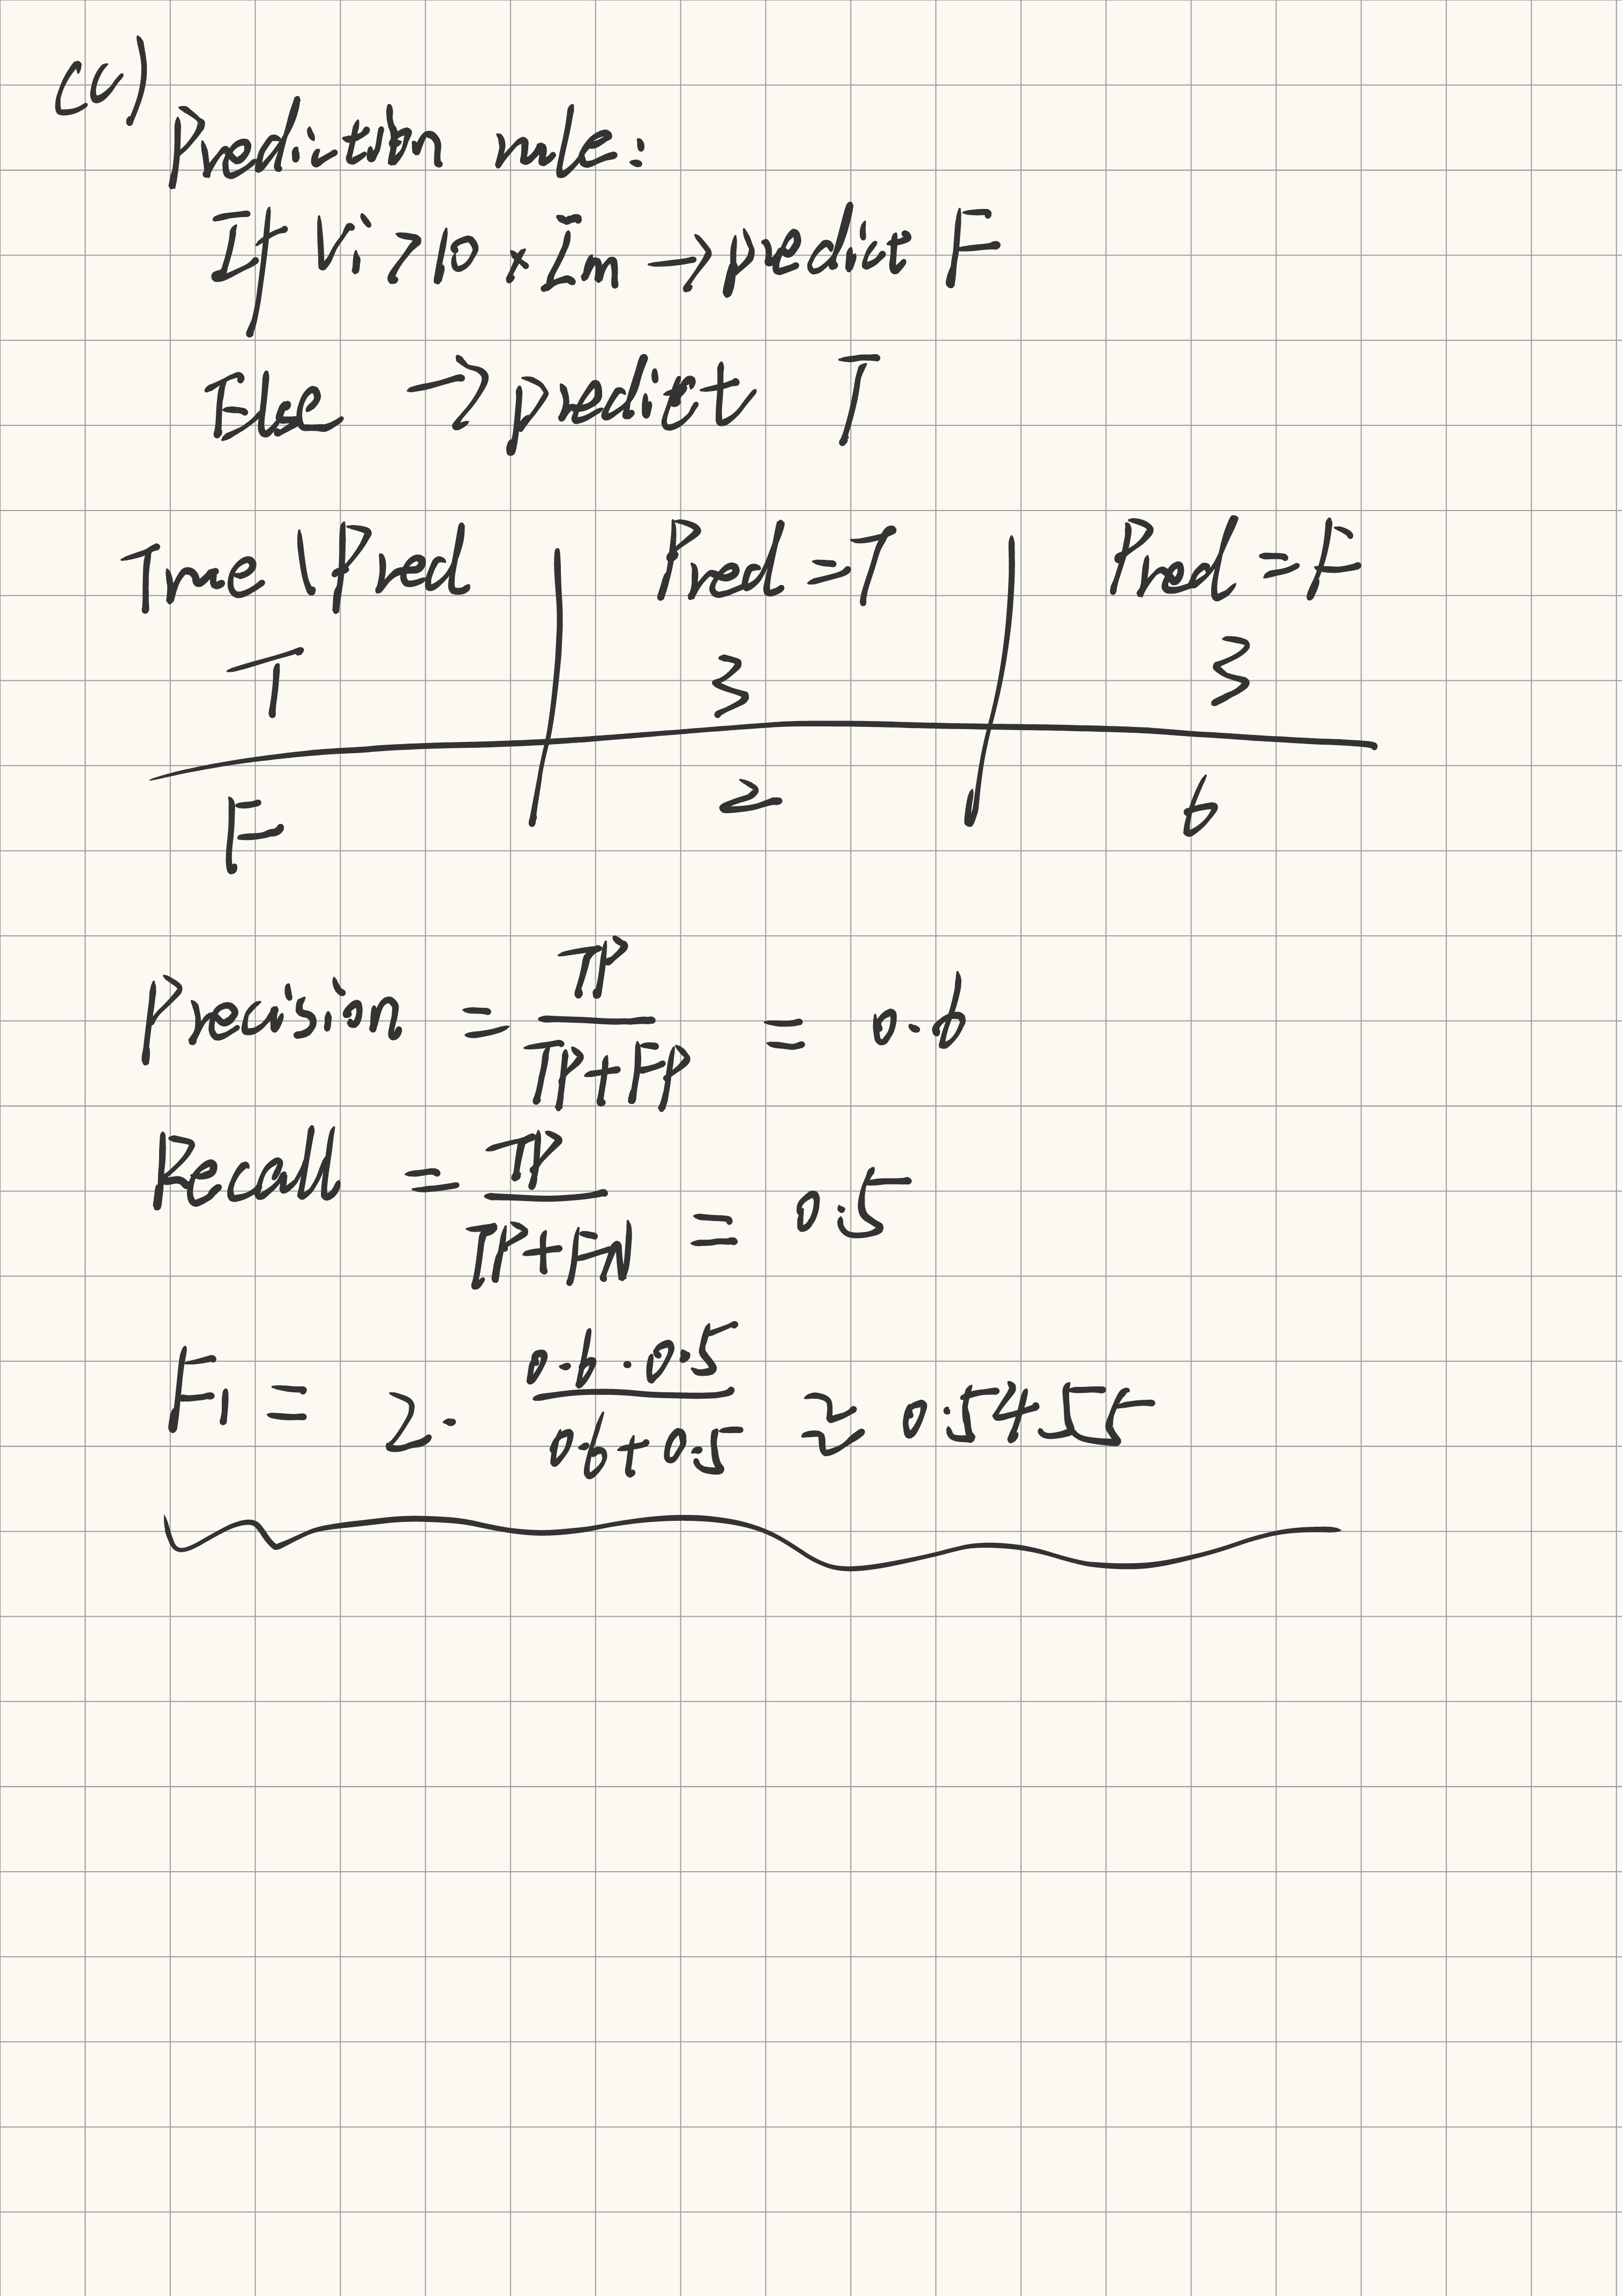 (c)
Prediction rule:
If Vi > 10 × Im → predict F
Else → predict T
True \ Pred | Pred = T | Pred = F
T 3 3
F 2 6
Precision = TP / TP + FP = 0.6
Recall = TP / TP + FN = 0.5
F1 = 2 · 0.6 · 0.5 / 0.6 + 0.5 ≈ 0.5455